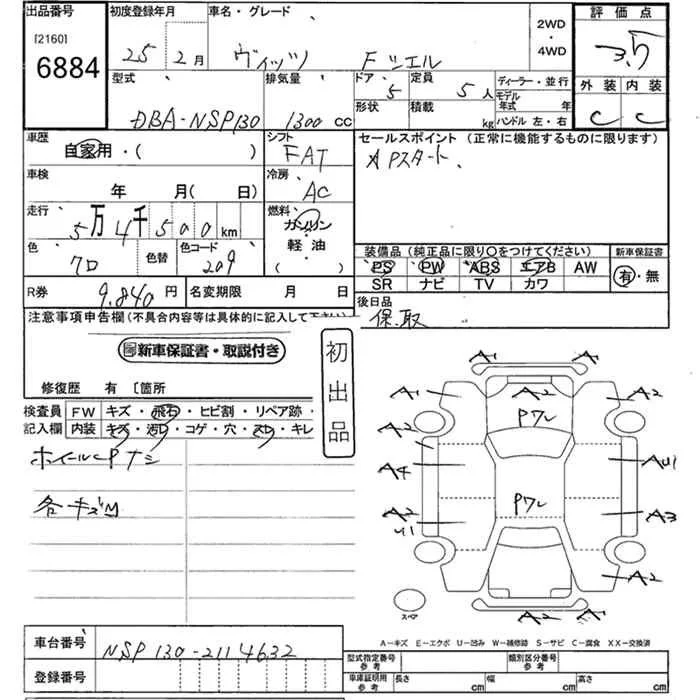 出品番号 初度登録年月 車名・グレード 2WD ・ 4WD 評価点
[2160]
6884 25 2月 ヴィッツ Fシエル 3.5
型式 排気量 ドア 定員 ディーラー・並行 外装 内装
5 5人 モデル年式 年
DBA-NSP130 1300cc 形状 積載 kg ハンドル 左・右 C C
車歴 自家用・( ) シフト FAT セールスポイント (正常に機能するものに限ります)
Pスタート
車検 年 月(日) 冷房 AC
走行 5万4千500km 燃料 ガソリン 軽油 ( )
色 色替 色コード 209 装備品 (純正品に限り○をつけてください) 新車保証書
PS PW ABS エアB AW 有・無
SR ナビ TV カワ
R券 9,840円 名変期限 月 日 後日品
注意事項申告欄(不具合内容等は具体的に記入して下さい) 保.取
新車保証書・取説付き
初出品
修復歴 有 〔箇所
検査員記入欄 FW キズ・飛石・ヒビ割・リペア跡・
内装 キズ・汚れ・コゲ・穴・スレ・キレ
ホイールCPナシ
各キズU
A1 A1
A1 A2 A2
Pフレ
A2
A4 AU1
Pフレ
A2 A3
U1
A2
A2 A1
スペア
A-キズ E-エクボ U-凹み W-補修跡 S-サビ C-腐食 XX-交換済
車台番号 NSP130-2114632
型式指定番号 参考 類別区分番号 参考
登録番号 車庫証明用 参考 長さ cm 幅 cm 高さ cm